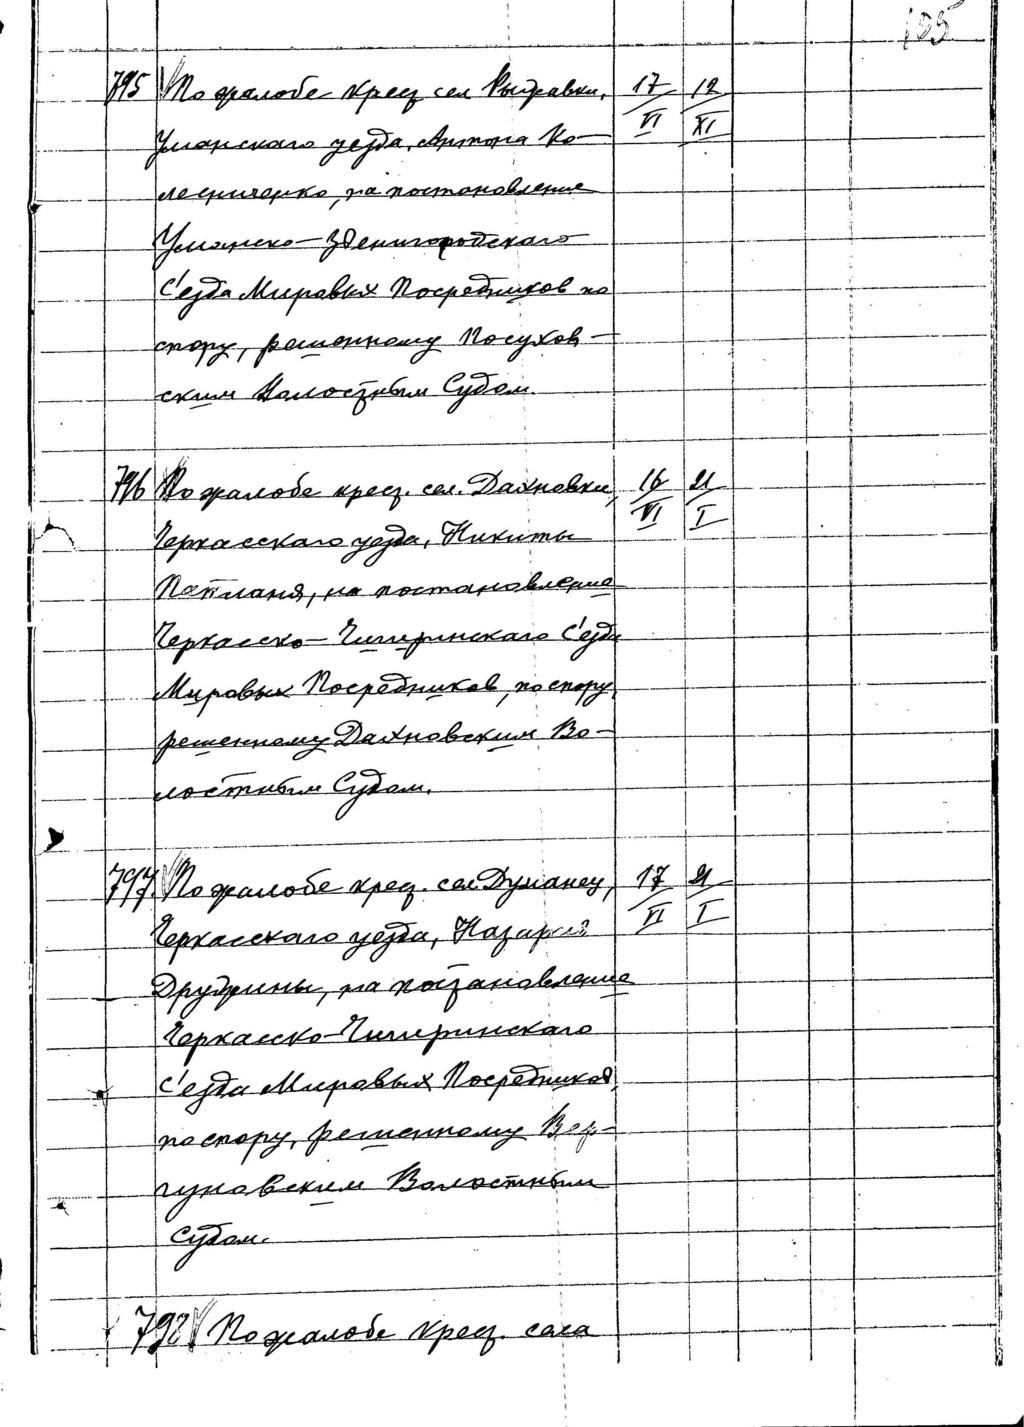 195
795 По жалобе крест. сел. Рыжавки, 17/VI 12/XI
Уманского уезда, Антона Ко-
лесниченко, на постановление
Уманско-Звенигородского
С'езда Мировых Посредников по
спору, решенному Посухов-
ским Волостным Судом.
796 По жалобе крест. сел. Дахновки, 16/VI 21/I
Черкасского уезда, Никиты
на постановление
Черкасско-Чигиринского С'езда
Мировых Посредников, по спору,
решенному Дахновским Во-
лостным Судом.
797 По жалобе крест. сел. Думанец, 17/VI 21/I
Черкасского уезда, Назария
на постановление
Черкасско-Чигиринского
С'езда Мировых Посредников,
по спору, решенному Вер-
гуновским Волостным
Судом.
798 По жалобе крест. села